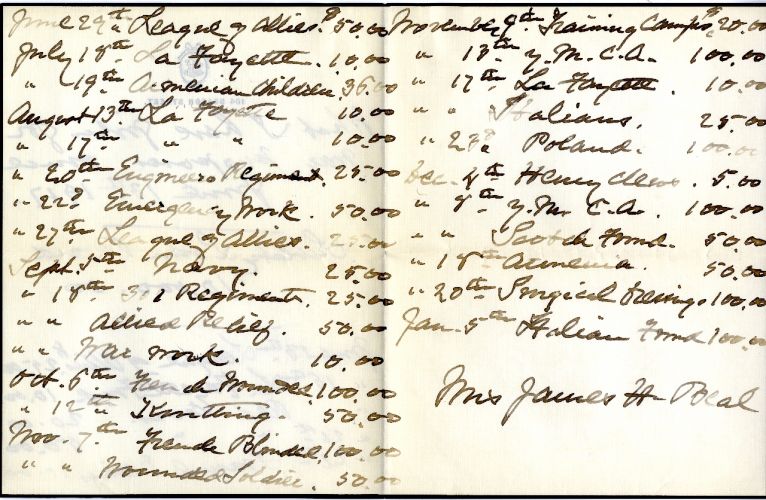 June 29th League of Allies. $50.00
July 18th La Fayette. 10.00
" 19th Armenian Children. 36.00
August 13th La Fayette 10.00
" 17th " " 10.00
" 20th Engineers Regiment. 25.00
" 22d Emergency Work. 50.00
" 27th League of Allies. 25.00
Sept. 5th Navy. 25.00
" 18th Regiments. 25.00
" " Allied Relief. 50.00
" " War work. 10.00
Oct. 6th French Wounded. 100.00
" 12th Knitting. 50.00
Nov. 7th French Blinded. 100.00
" " Wounded Soldier. 50.00
November 9th Training Camps $20.00
" 13th Y.M.C.A. 100.00
" 17th La Fayette. 10.00
" " Italians. 25.00
" Poland. 100.00
Dec. 4th Henry Clews. 5.00
" 8th Y.M.C.A. 100.00
" " Scotch Fund. 50.00
" 18th Armenia. 50.00
" 20th Surgical Dressings 100.00
Jan. 5th Italian Fund 100.00
Mrs James H. Beal